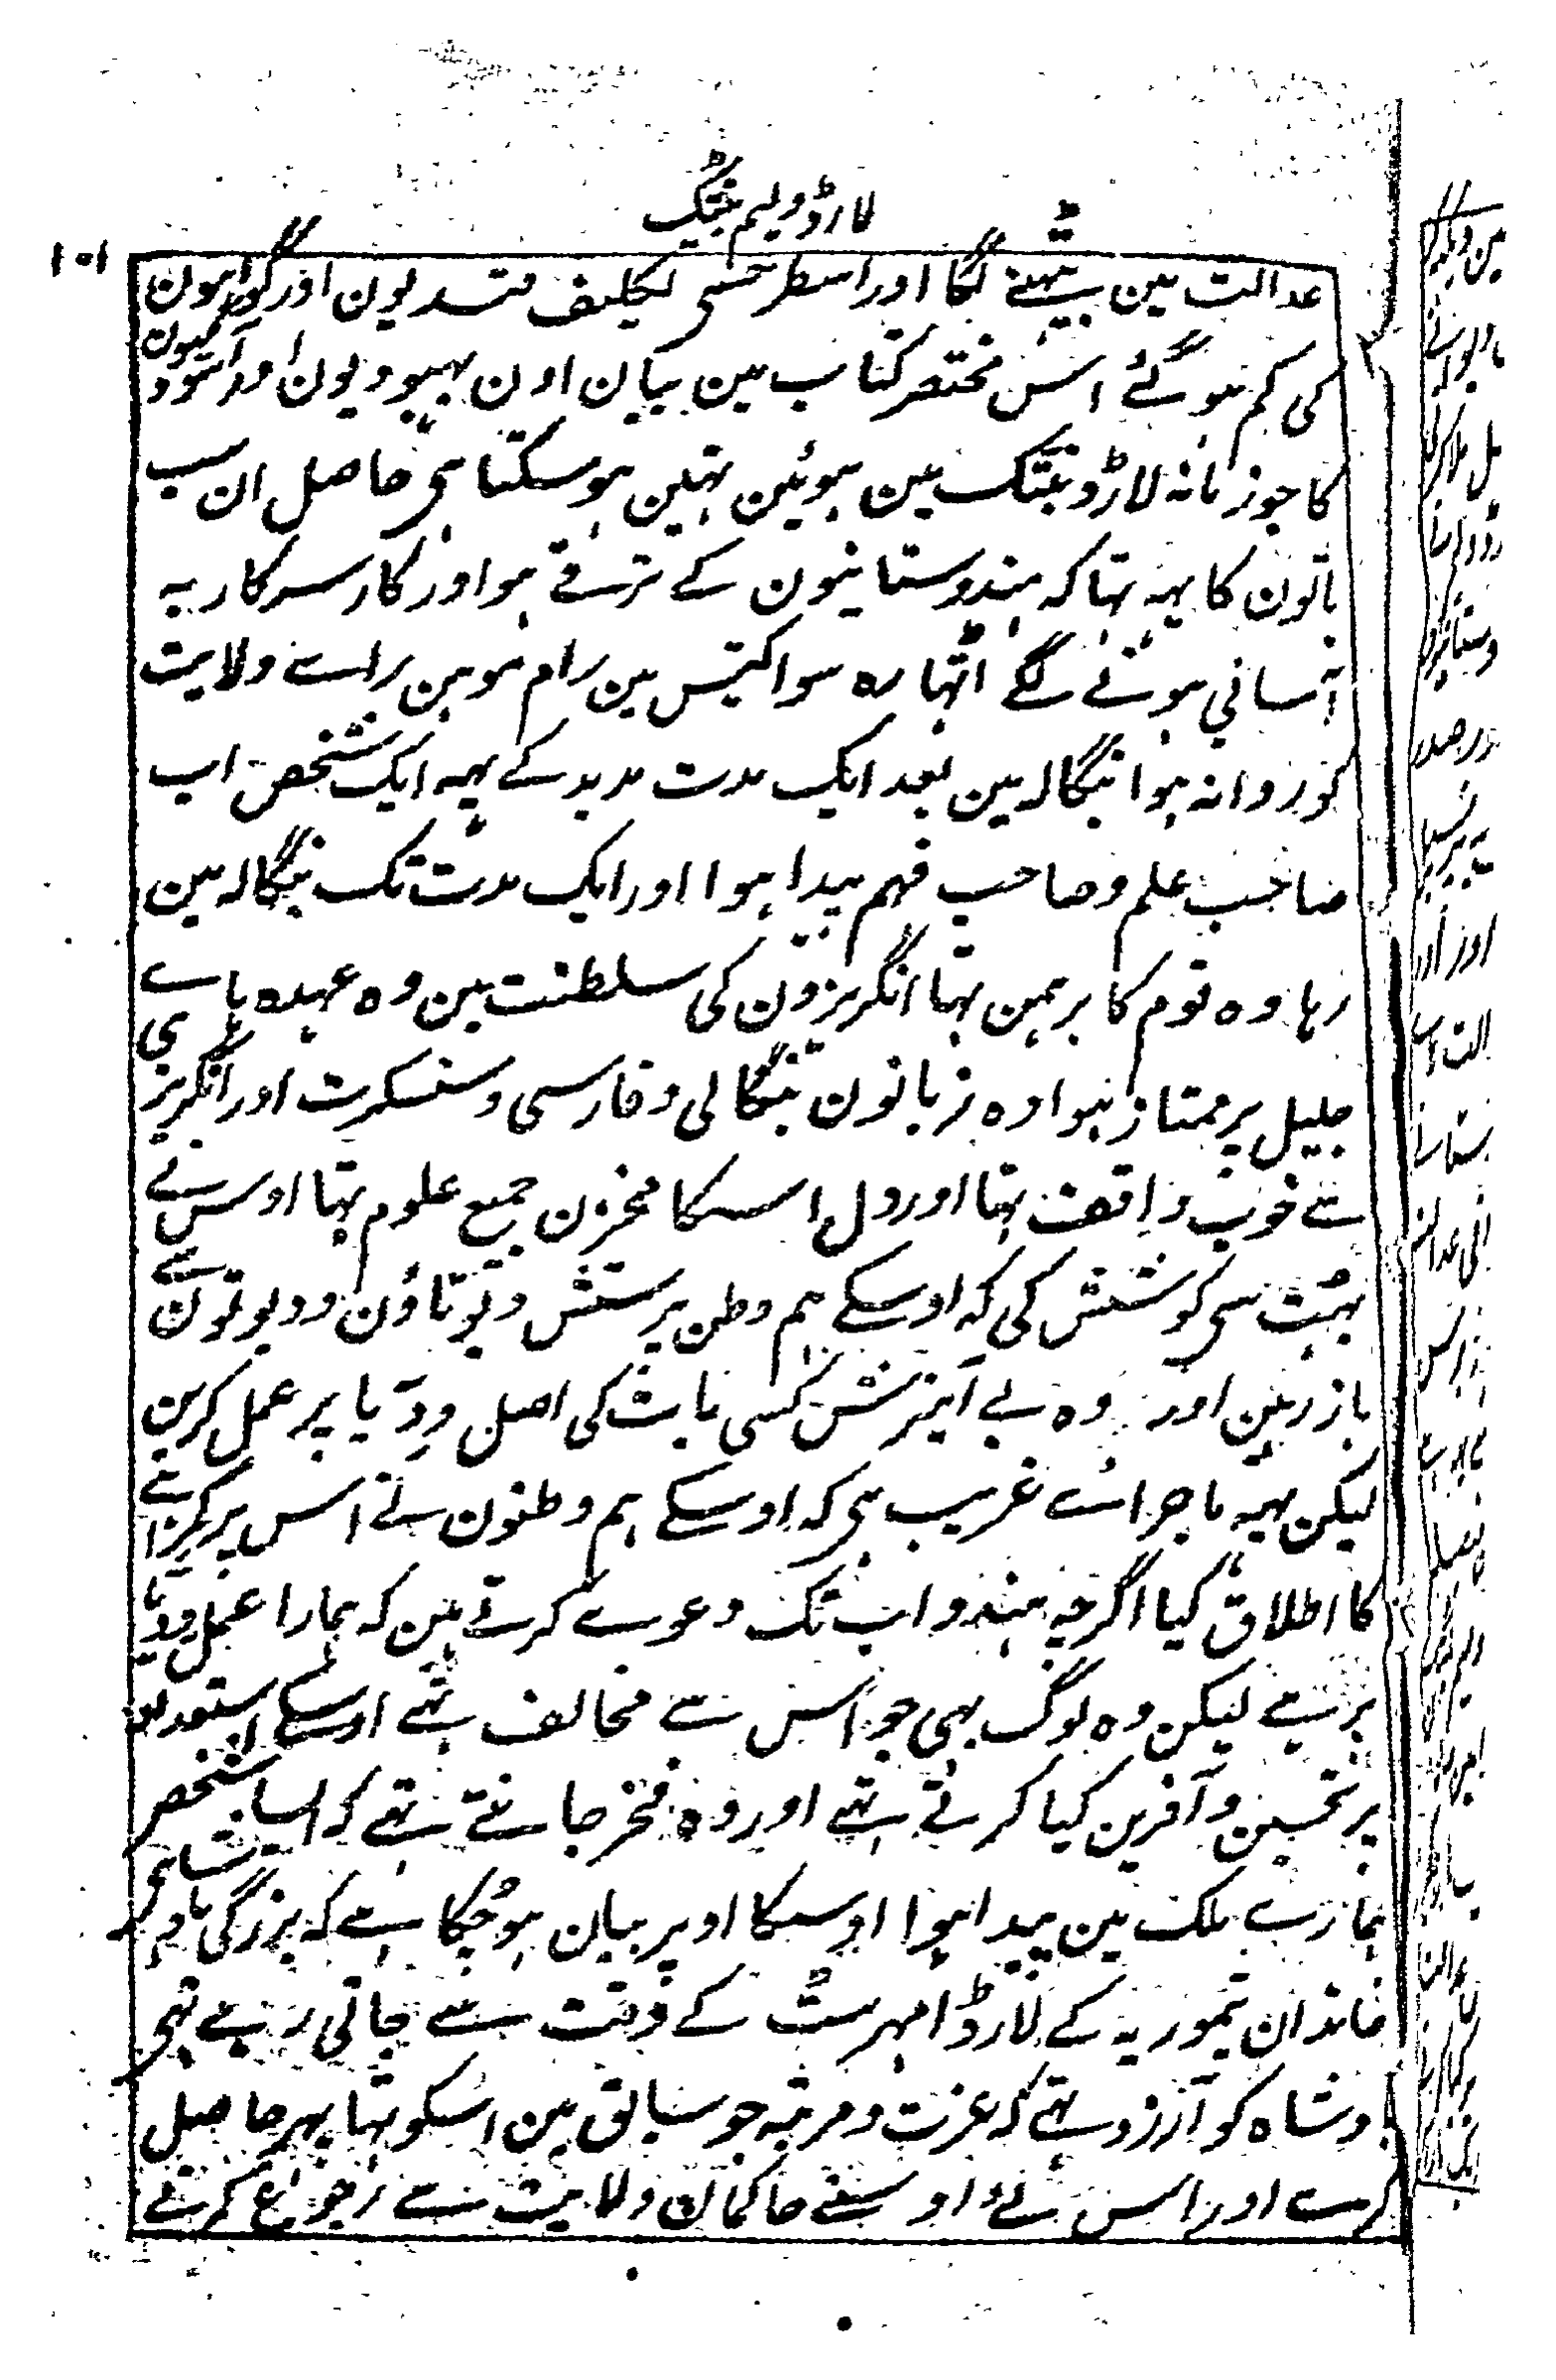 لارڈ ولیم بنٹنگ
۱۰۱
عدالت مین بیٹہنے لگا اور اسطرحسی تکلیف قیدیون اور گواہون
کی کم ہوگئے اس مختصر کتاب مین بیان اون بہبودیون اور آسودگیون
کا جو زمانہ لارڈ بنٹنگ مین ہوئین نہین ہوسکتا ہی حاصل ان سب
باتون کا یہہ تہا کہ ہندوستانیون کے ترقے ہو اور کار سرکار بہ
آسانی ہونے لگے اٹہارہ سو اکتیس مین رام موہن راے ولایت
کو روانہ ہوا بنگالہ مین بعد ایک مدت مدید کے یہہ ایک شخص اب
صاحب علم و صاحب فہم پیدا ہوا اور ایک مدت تک بنگالہ مین
رہا وہ قوم کا برہمن تہا انگریزون کی سلطنت مین وہ عہدہ ہاے
جلیل پر ممتاز ہوا وہ زبانون بنگالی و فارسی و سنسکرت اور انگریزی
سے خوب واقف تہا اور دل اسکا مخزن جمیع علوم تہا اوس نے
بہت سی کوشش کی کہ اوسکے ہم وطن پرستش دیوتاؤن و دیویون سے
باز رہین اور وہ بے آمیزش کسی بات کی اصل ودیا پر عمل کرین
لیکن یہہ ماجراے غریب ہی کہ اوسکے ہم وطنون نے اس پر کرانے
کا اطلاق کیا اگرچہ ہندو اب تک دعوے کرتے ہین کہ ہمارا عمل ودیا
پر ہے لیکن وہ لوگ بہی جو اس سے مخالف تہے اوسکے استعداد
پر تحسین و آفرین کیا کرتے تہے اور وہ فخر جانتے تہے کہ ایسا شخص
ہمارے ملک مین پیدا ہوا اوسکا اوپر بیان ہوچکا ہے کہ بزرگی نام شاہی
خاندان تیموریہ کے لارڈ امہرسٹ کے وقت سے جاتی رہے تہی
بادشاہ کو آرزو تہے کہ عزت و مرتبہ جو سابق مین اسکو تہا پہر حاصل
کرے اور اس لئے اوسنے حاکمان ولایت سے رجوع کرنے